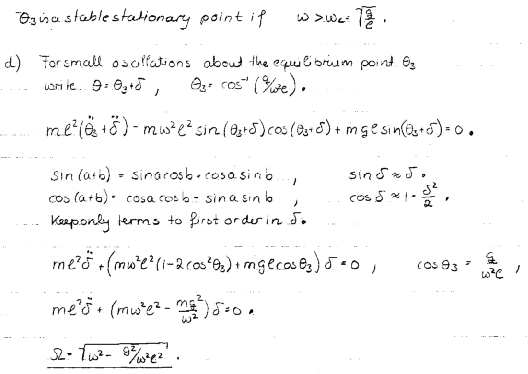 θ₃ is a stable stationary point if ω > ω_c = √(g/ℓ).
d) For small oscillations about the equilibrium point θ₃
write θ = θ₃+δ, θ₃ = cos⁻¹(g/ω²ℓ).
mℓ²(θ̈₃ + δ̈) - mω²ℓ² sin(θ₃+δ)cos(θ₃+δ) + mgℓ sin(θ₃+δ) = 0.
sin(a+b) = sinacosb + cosasinb, sin δ ≈ δ.
cos(a+b) = cosacosb - sinasinb, cos δ ≈ 1 - δ²/2.
Keep only terms to first order in δ.
mℓ²δ̈ + (mω²ℓ²(1-2cos²θ₃) + mgℓcosθ₃)δ = 0, cosθ₃ = g/ω²ℓ,
mℓ²δ̈ + (mω²ℓ² - mg²/ω²)δ = 0.
Ω = √(ω² - g²/ω²ℓ²).